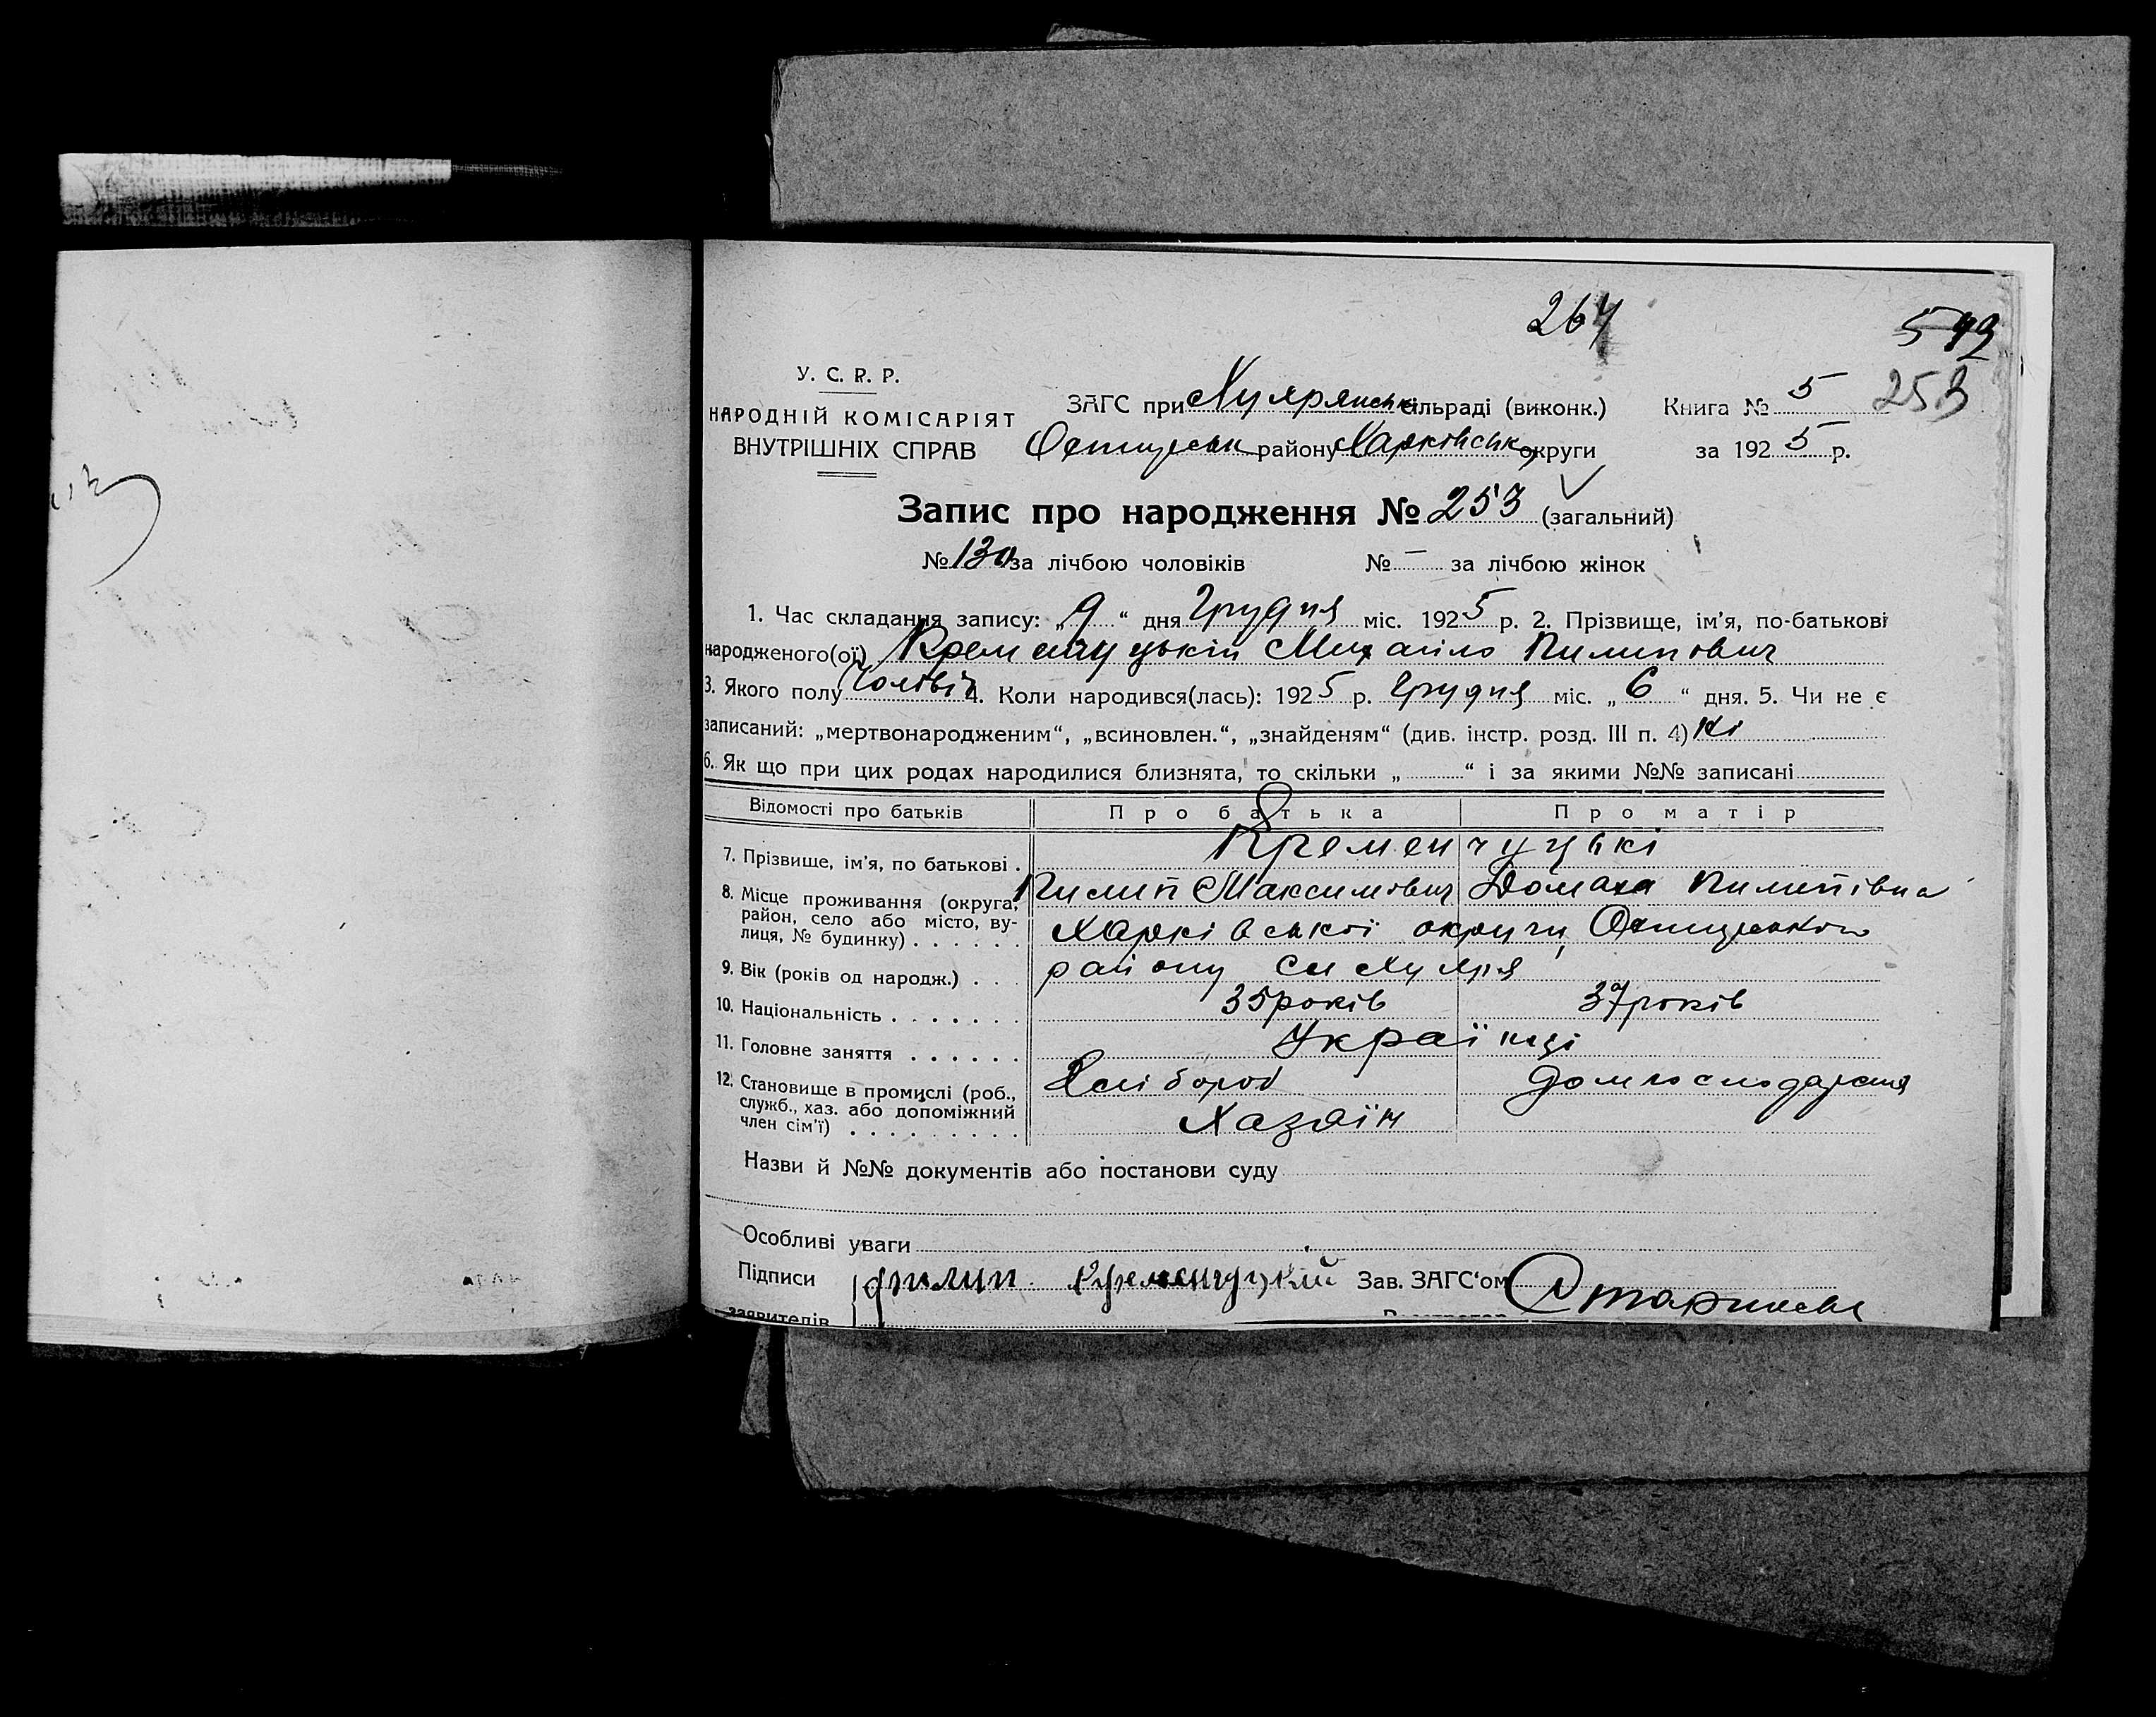 264
549
У. С. Р. Р.
ЗАГС при Хулярянськ сільраді (виконк.) Книга № 5 253
НАРОДНІЙ КОМІСАРІЯТ
ВНУТРІШНІХ СПРАВ
району Харківськ округи за 1925 р.
Запис про народження № 253 (загальний)
№ 130 за лічбою чоловіків № — за лічбою жінок
1. Час складання запису: „9“ дня Грудня міс. 1925 р. 2. Прізвище, ім'я, по-батькові
народженого(ої) Кременчуцькій Михайло Пилипович
3. Якого полу Чоловіч 4. Коли народився(лась): 1925 р. Грудня міс. „6“ дня. 5. Чи не є
записаний: „мертвонародженим“, „всиновлен.“, „знайденям“ (див. інстр. розд. III п. 4) Ні
6. Як що при цих родах народилися близнята, то скільки „ “ і за якими №№ записані
Відомості про батьків Про батька Про матір
7. Прізвище, ім'я, по батькові . Кременчуцькі
Пилип Максимович Домаха Пилипівна
8. Місце проживання (округа, район, село або місто, ву-
лиця, № будинку) . . . . . . Харківської округи,
району
9. Вік (років од народж.) . . . 35 років 37 років
10. Національність . . . . . . . Українці
11. Головне заняття . . . . . . Хлібороб домгосподарка
12. Становище в промислі (роб.,
служб., хаз. або допоміжний
член сім'ї) . . . . . . . . . Хазяїн
Назви й №№ документів або постанови суду
Особливі уваги
Підписи Филип Кременчуцкий Зав. ЗАГС'ом
заявителів